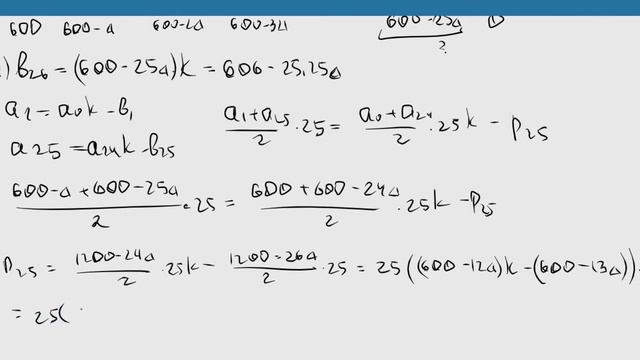 600 600-a 600-2Δ 600-3Δ 600-25Δ 0
?
) b26 = (600-25Δ)k = 606-25,25Δ
a1 = a0k - b1
a25 = a24k - b25
(a1+a25)/2 · 25 = (a0+a24)/2 · 25k - P25
(600-Δ+600-25Δ)/2 · 25 = (600+600-24Δ)/2 · 25k - P25
P25 = (1200-24Δ)/2 · 25k - (1200-26Δ)/2 · 25 = 25((600-12Δ)k - (600-13Δ))
= 25(